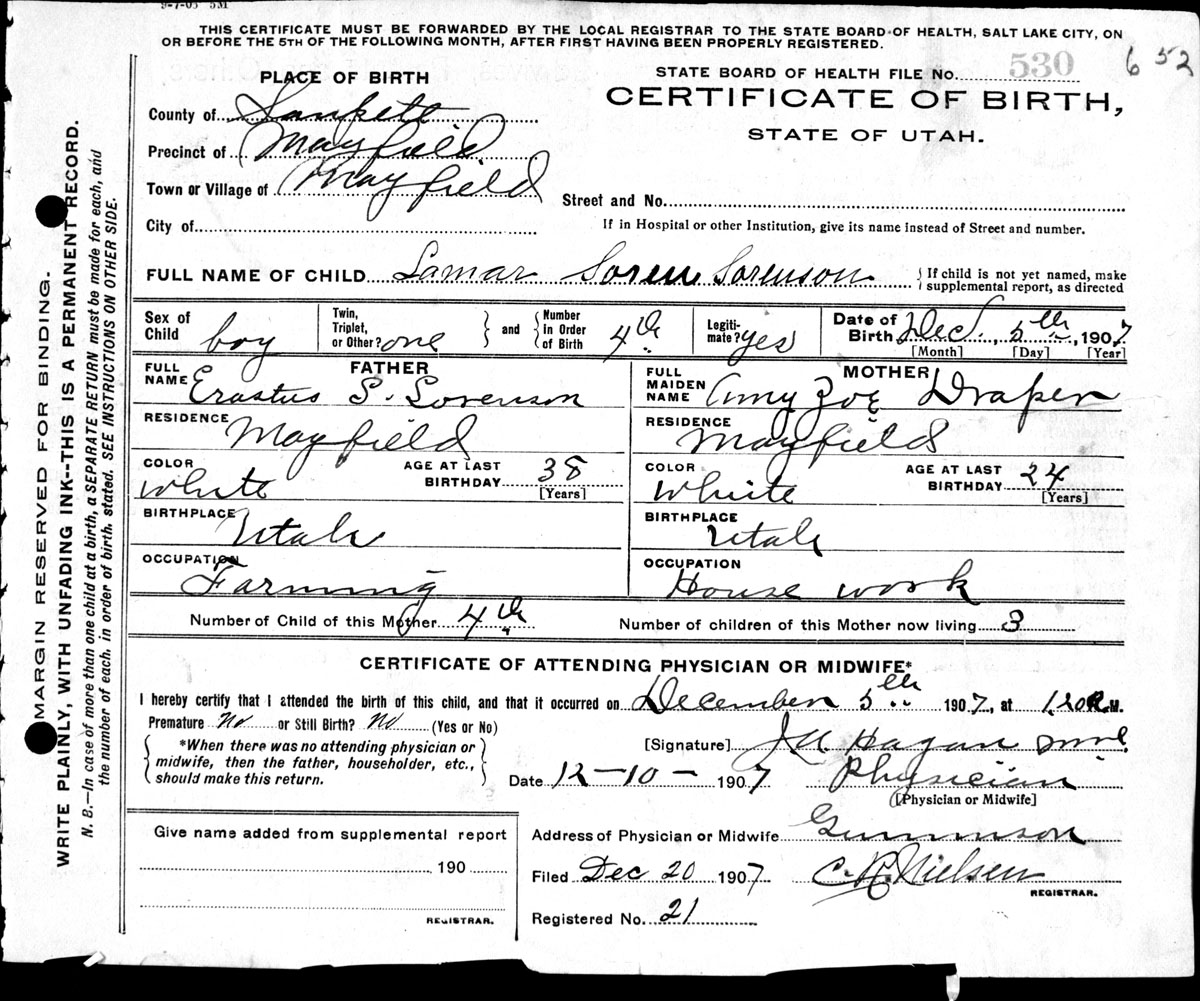 9-7-05 5M
THIS CERTIFICATE MUST BE FORWARDED BY THE LOCAL REGISTRAR TO THE STATE BOARD OF HEALTH, SALT LAKE CITY, ON
OR BEFORE THE 5TH OF THE FOLLOWING MONTH, AFTER FIRST HAVING BEEN PROPERLY REGISTERED.
PLACE OF BIRTH
STATE BOARD OF HEALTH FILE No. 530 652
CERTIFICATE OF BIRTH,
STATE OF UTAH.
County of Sanpete
Precinct of Mayfield
Town or Village of Mayfield
Street and No.
City of
If in Hospital or other Institution, give its name instead of Street and number.
FULL NAME OF CHILD Lamar Soren Sorenson
{If child is not yet named, make
supplemental report, as directed
Sex of Child boy
Twin, Triplet, or Other? one } and { Number in Order of Birth 4th
Legiti-mate? yes
Date of Birth Dec. 5th, 1907
[Month] [Day] [Year]
FATHER
FULL NAME Erastus S. Sorenson
RESIDENCE Mayfield
COLOR White
AGE AT LAST BIRTHDAY 38
[Years]
BIRTHPLACE Utah
OCCUPATION Farming
MOTHER
FULL MAIDEN NAME Amy Zoe Draper
RESIDENCE Mayfield
COLOR White
AGE AT LAST BIRTHDAY 24
[Years]
BIRTHPLACE Utah
OCCUPATION House work
Number of Child of this Mother 4th
Number of children of this Mother now living 3
CERTIFICATE OF ATTENDING PHYSICIAN OR MIDWIFE*
I hereby certify that I attended the birth of this child, and that it occurred on December 5th 1907, at 1.20 M.
Premature No or Still Birth? No (Yes or No)
{*When there was no attending physician or
midwife, then the father, householder, etc.,
should make this return.}
[Signature] Hagan
Date 12-10-1907
Physician
[Physician or Midwife]
Give name added from supplemental report
190
REGISTRAR.
Address of Physician or Midwife Gunnison
Filed Dec 20 1907 C. R. Nielsen
REGISTRAR.
Registered No. 21
MARGIN RESERVED FOR BINDING.
WRITE PLAINLY, WITH UNFADING INK--THIS IS A PERMANENT RECORD.
N. B.—In case of more than one child at a birth, a SEPARATE RETURN must be made for each, and
the number of each, in order of birth, stated. SEE INSTRUCTIONS ON OTHER SIDE.